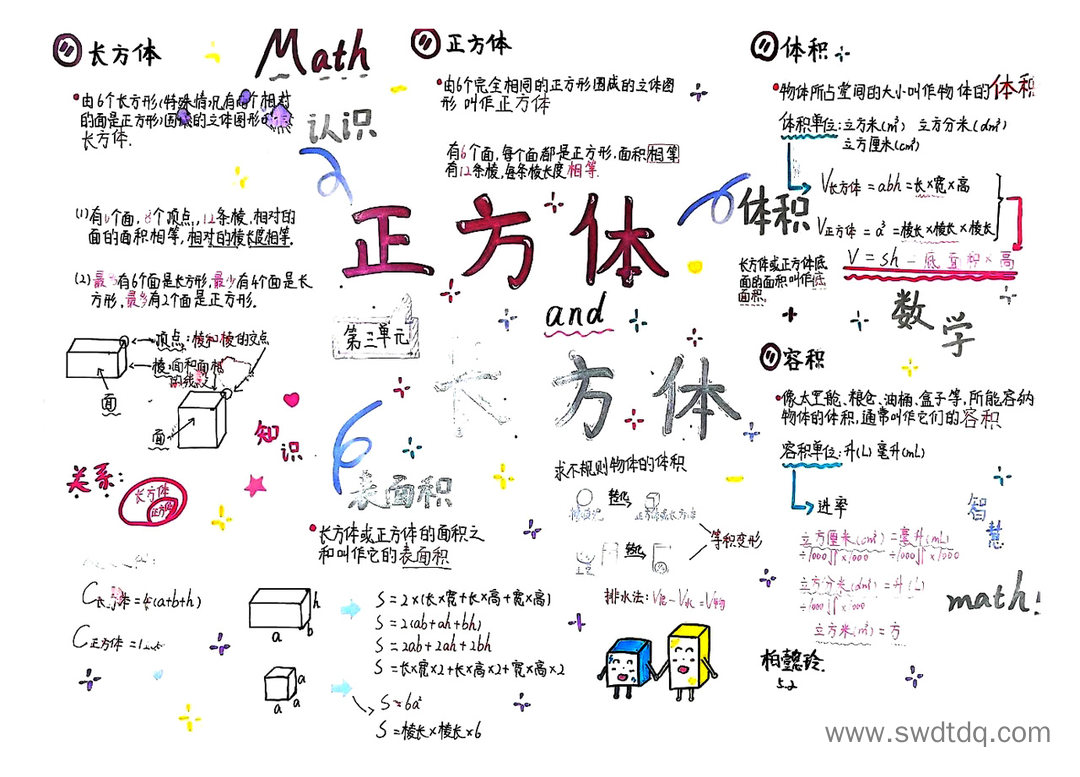 长方体
Math
由6个长方形(特殊情况有两个相对
的面是正方形)围成的立体图形
长方体.
认识
(1)有6个面, 8个顶点, 12条棱, 相对的
面的面积相等, 相对的棱长度相等.
(2)最多有6个面是长方形, 最少有4个面是长
方形, 最多有2个面是正方形.
顶点:棱和棱的交点
棱:面和面相
的线
面
面
知识
关系:
长方体
正方体
C长方体=4(a+b+h)
C正方体=
正方体
由6个完全相同的正方形围成的立体图
形 叫作正方体
有6个面, 每个面都是正方形, 面积相等
有12条棱, 每条棱长度相等.
正方体
and
第三单元
长方体
表面积
长方体或正方体的面积之
和叫作它的表面积
h
a
b
S=2×(长×宽+长×高+宽×高)
S=2(ab+ah+bh)
S=2ab+2ah+2bh
S=长×宽×2+长×高×2+宽×高×2
a
a
a
S=6a²
S=棱长×棱长×6
求不规则物体的体积
转化
正方体或长方体
转化
等积变形
排水法:
体积
物体所占空间的大小叫作物体的体积
体积单位:立方米(m³) 立方分米(dm³)
立方厘米(cm³)
体积
V长方体=abh=长×宽×高
V正方体=a³=棱长×棱长×棱长
V=sh=底面积×高
长方体或正方体底
面的面积叫作底
面积.
数学
容积
像太空舱、粮仓、油桶、盒子等, 所能容纳
物体的体积, 通常叫作它们的容积
容积单位:升(L) 毫升(mL)
进率
智慧
立方厘米(cm³)=毫升(mL)
÷1000 ×1000 ÷1000 ×1000
立方分米(dm³)=升(L)
÷1000 ×1000
立方米(m³)=方
math!
柏懿玲
5.2
www.swdtdq.com